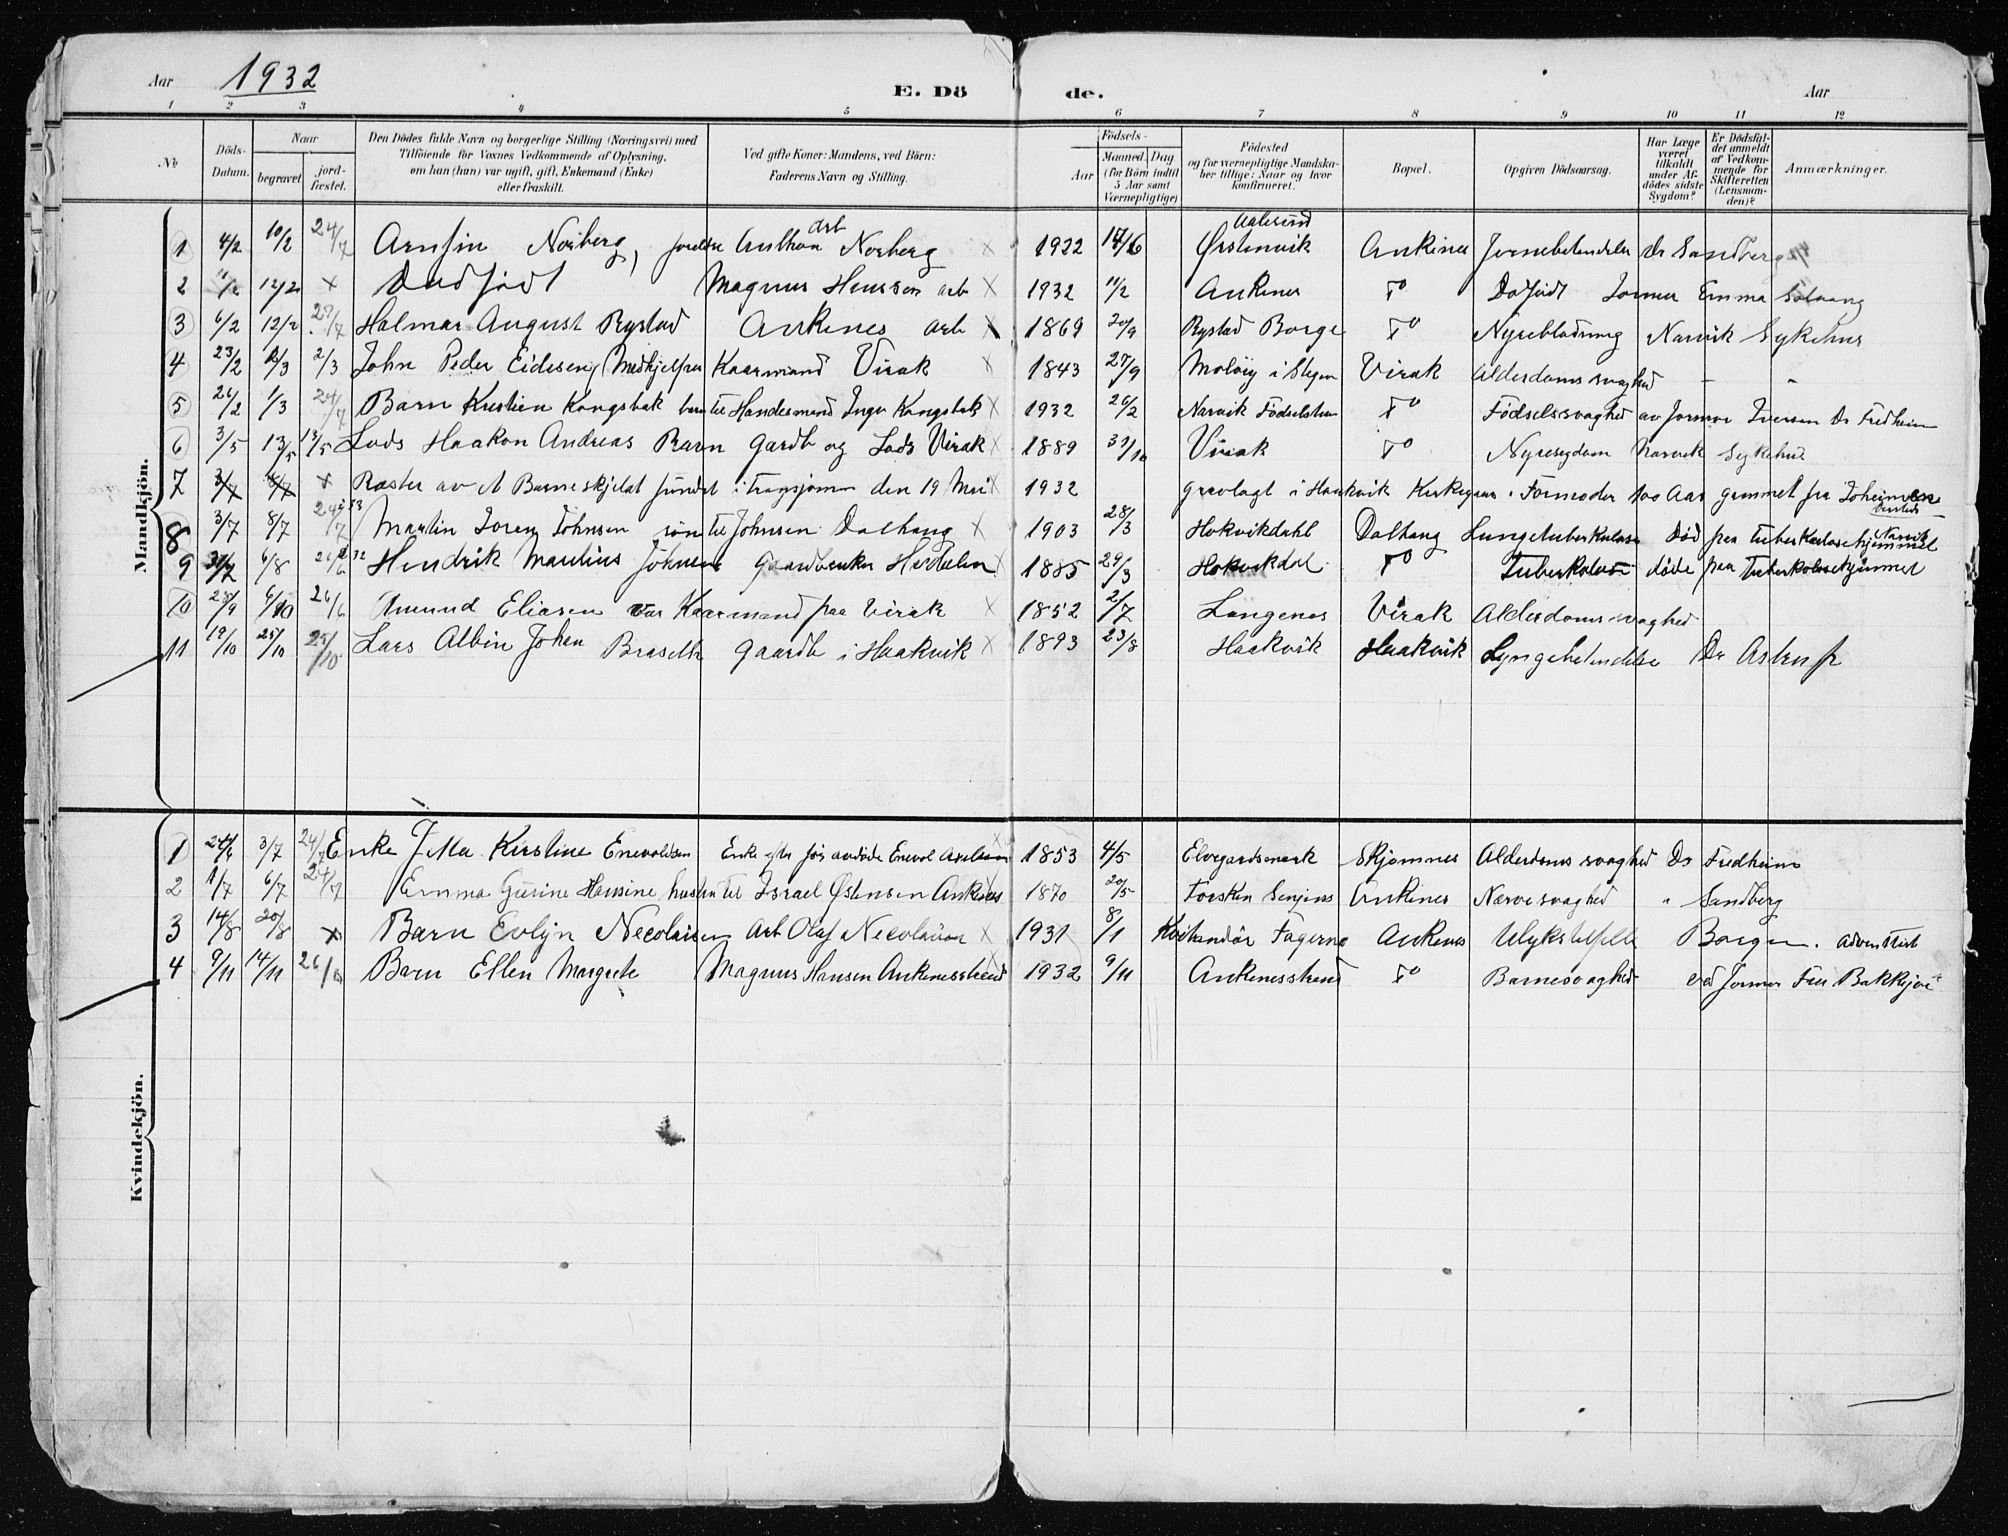 Aar 1932 E. Dö de. Aar
1 2 3 4 5 6 7 8 9 10 11 12
No Döds-Datum. Naar begravet. jord-fæstet. Den Dödes fulde Navn og borgerlige Stilling (Næringsvei) med Tilföiende for Voxnes Vedkommende af Oplysning, om han (hun) var ugift, gift, Enkemand (Enke) eller fraskilt. Ved gifte Koner: Mandens, ved Börn: Faderens Navn og Stilling. Födsels- Aar Maaned. Dag (for Börn indtil 5 Aar samt Værnepligtige) Födested og for værnepligtige Mandskaber tillige: Naar og hvor konfirmeret. Bopæl. Opgiven Dödsaarsag. Har Læge været tilkaldt under Afdödes sidste Sygdom? Er Dödsfaldet anmeldt af Vedkommende for Skifteretten (Lensmanden)? Anmærkninger.
Mandkjön.
1 4/2 10/2 24/7 Arnfin Norberg, Anthon Norberg arb × 1922 Ørstenvik Aalesund Ankenes Dr Sandberg
2 11/2 12/2 × Dødfødt Magnus Hansen arb × 1932 11/2 Ankenes Do Dødfødt Jormor Emma Solvang
3 6/2 12/2 Halmar August Rystad Ankenes arb × 1869 20/9 Rystad Borge Do Nyreblødning Narvik Sykehus
4 23/2 2/3 2/3 John Peder Eidesen, Kaarmand Virak × 1843 27/9 Moløig i Stegen Virak Alderdomssvaghed - "
5 26/2 1/3 24/7 Barn Kristien Kongsbak barn til Handesmand Inge Kongsbak × 1932 26/2 Narvik Do Fødselssvaghed av Jormor Iversen Dr Fredheim
6 3/5 13/5 13/5 Lods Haakon Andreas Ravn Gardb og Lods Virak × 1889 31/10 Virak Do Nyresygdom Narvik Sykehus
7 × Ræster av et Barneskjelet fundet i den 19 Mai × 1932 gravlagt i Haakvik Kirkegaar. Formoder 100 Aar gammel fra
8 3/7 8/7 24/7 Martin Johnsen søn til Johnsen Dalhaug × 1903 28/3 Hokvikdahl Dalhaug Lungetuberkulose Død paa Tuberkulosehjemmet Narvik
9 6/8 Hendrik Mautius Johnsen Gaardbruker × 1885 29/3 Hokvikdal Do Tuberkulose døde paa Tuberkolosehjemmet
10 28/9 6/10 26/6 Amund Eliasen var Kaarmand paa Virak × 1852 2/7 Langenes Virak Alderdomssvaghed
11 19/10 25/10 25/10 Lars Albin Johan Gaardb i Haakvik × 1893 23/8 Haakvik Haakvik Lyngebetendelse Dr
Kvindekjön.
1 3/7 24/7 Enke Kirstine Enevoldsen Enke efter før avdøde Enevol × 1853 4/5 Elvegardsmark Skjomnes Alderdomssvaghed Dr Fredheim
2 1/7 6/7 24/7 Emma Gurine Hansine hustru til Israel Østensen Ankenes 1870 20/5 Forsken Senjens Ankenes Nærvesvaghed " Sandberg
3 14/8 20/8 × Barn Evlyn Necolaisen Arb Olaf Necolaisen × 1931 8/1 Fagernes Ankenes Ulykstilfelle Borgen. adventtist
4 9/11 14/11 Barn Ellen Margrete Magnus Hansen Ankenesstrand 1932 9/11 Ankenesstrand Do Barnesvaghed ved Jormor Bakkejor